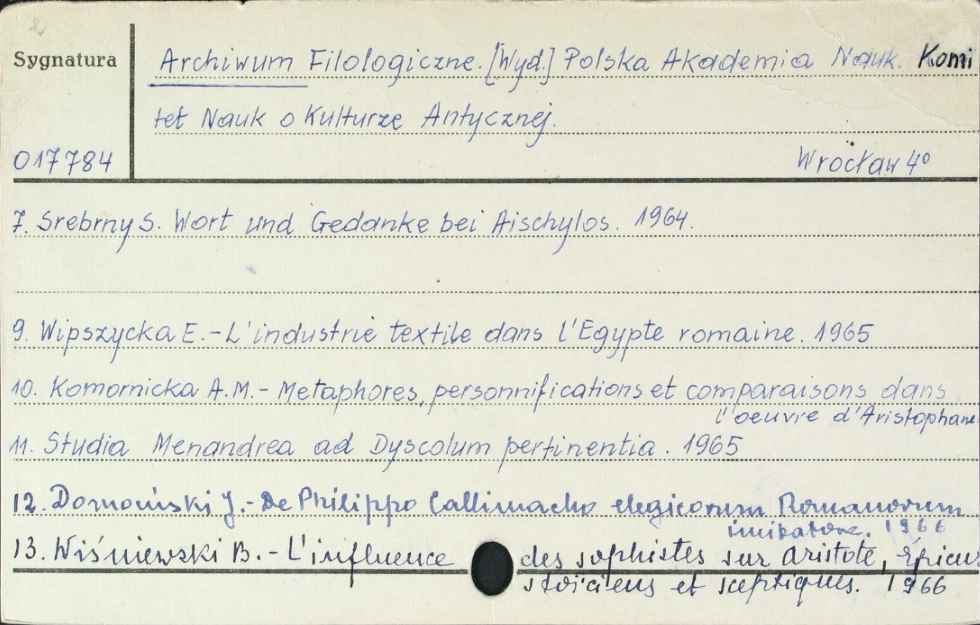 Sygnatura
Archiwum Filologiczne. [Wyd.] Polska Akademia Nauk. Komi
tet Nauk o Kulturze Antycznej.
017784
Wrocław 4°
7. Srebrny S. Wort und Gedanke bei Aischylos. 1964.
9. Wipszycka E. - L'industrie textile dans l'Egypte romaine. 1965
10. Komornicka A.M. - Metaphores, personnifications et comparaisons dans
l'oeuvre d'Aristophane
11. Studia Menandrea ad Dyscolum pertinentia. 1965
12. Domański J. - De Philippo Callimacho elegicorum Romanorum
imitatore. 1966
13. Wiśniewski B. - L'influence des sophistes sur Aristote, Épicur
stoiciens et sceptiques. 1966